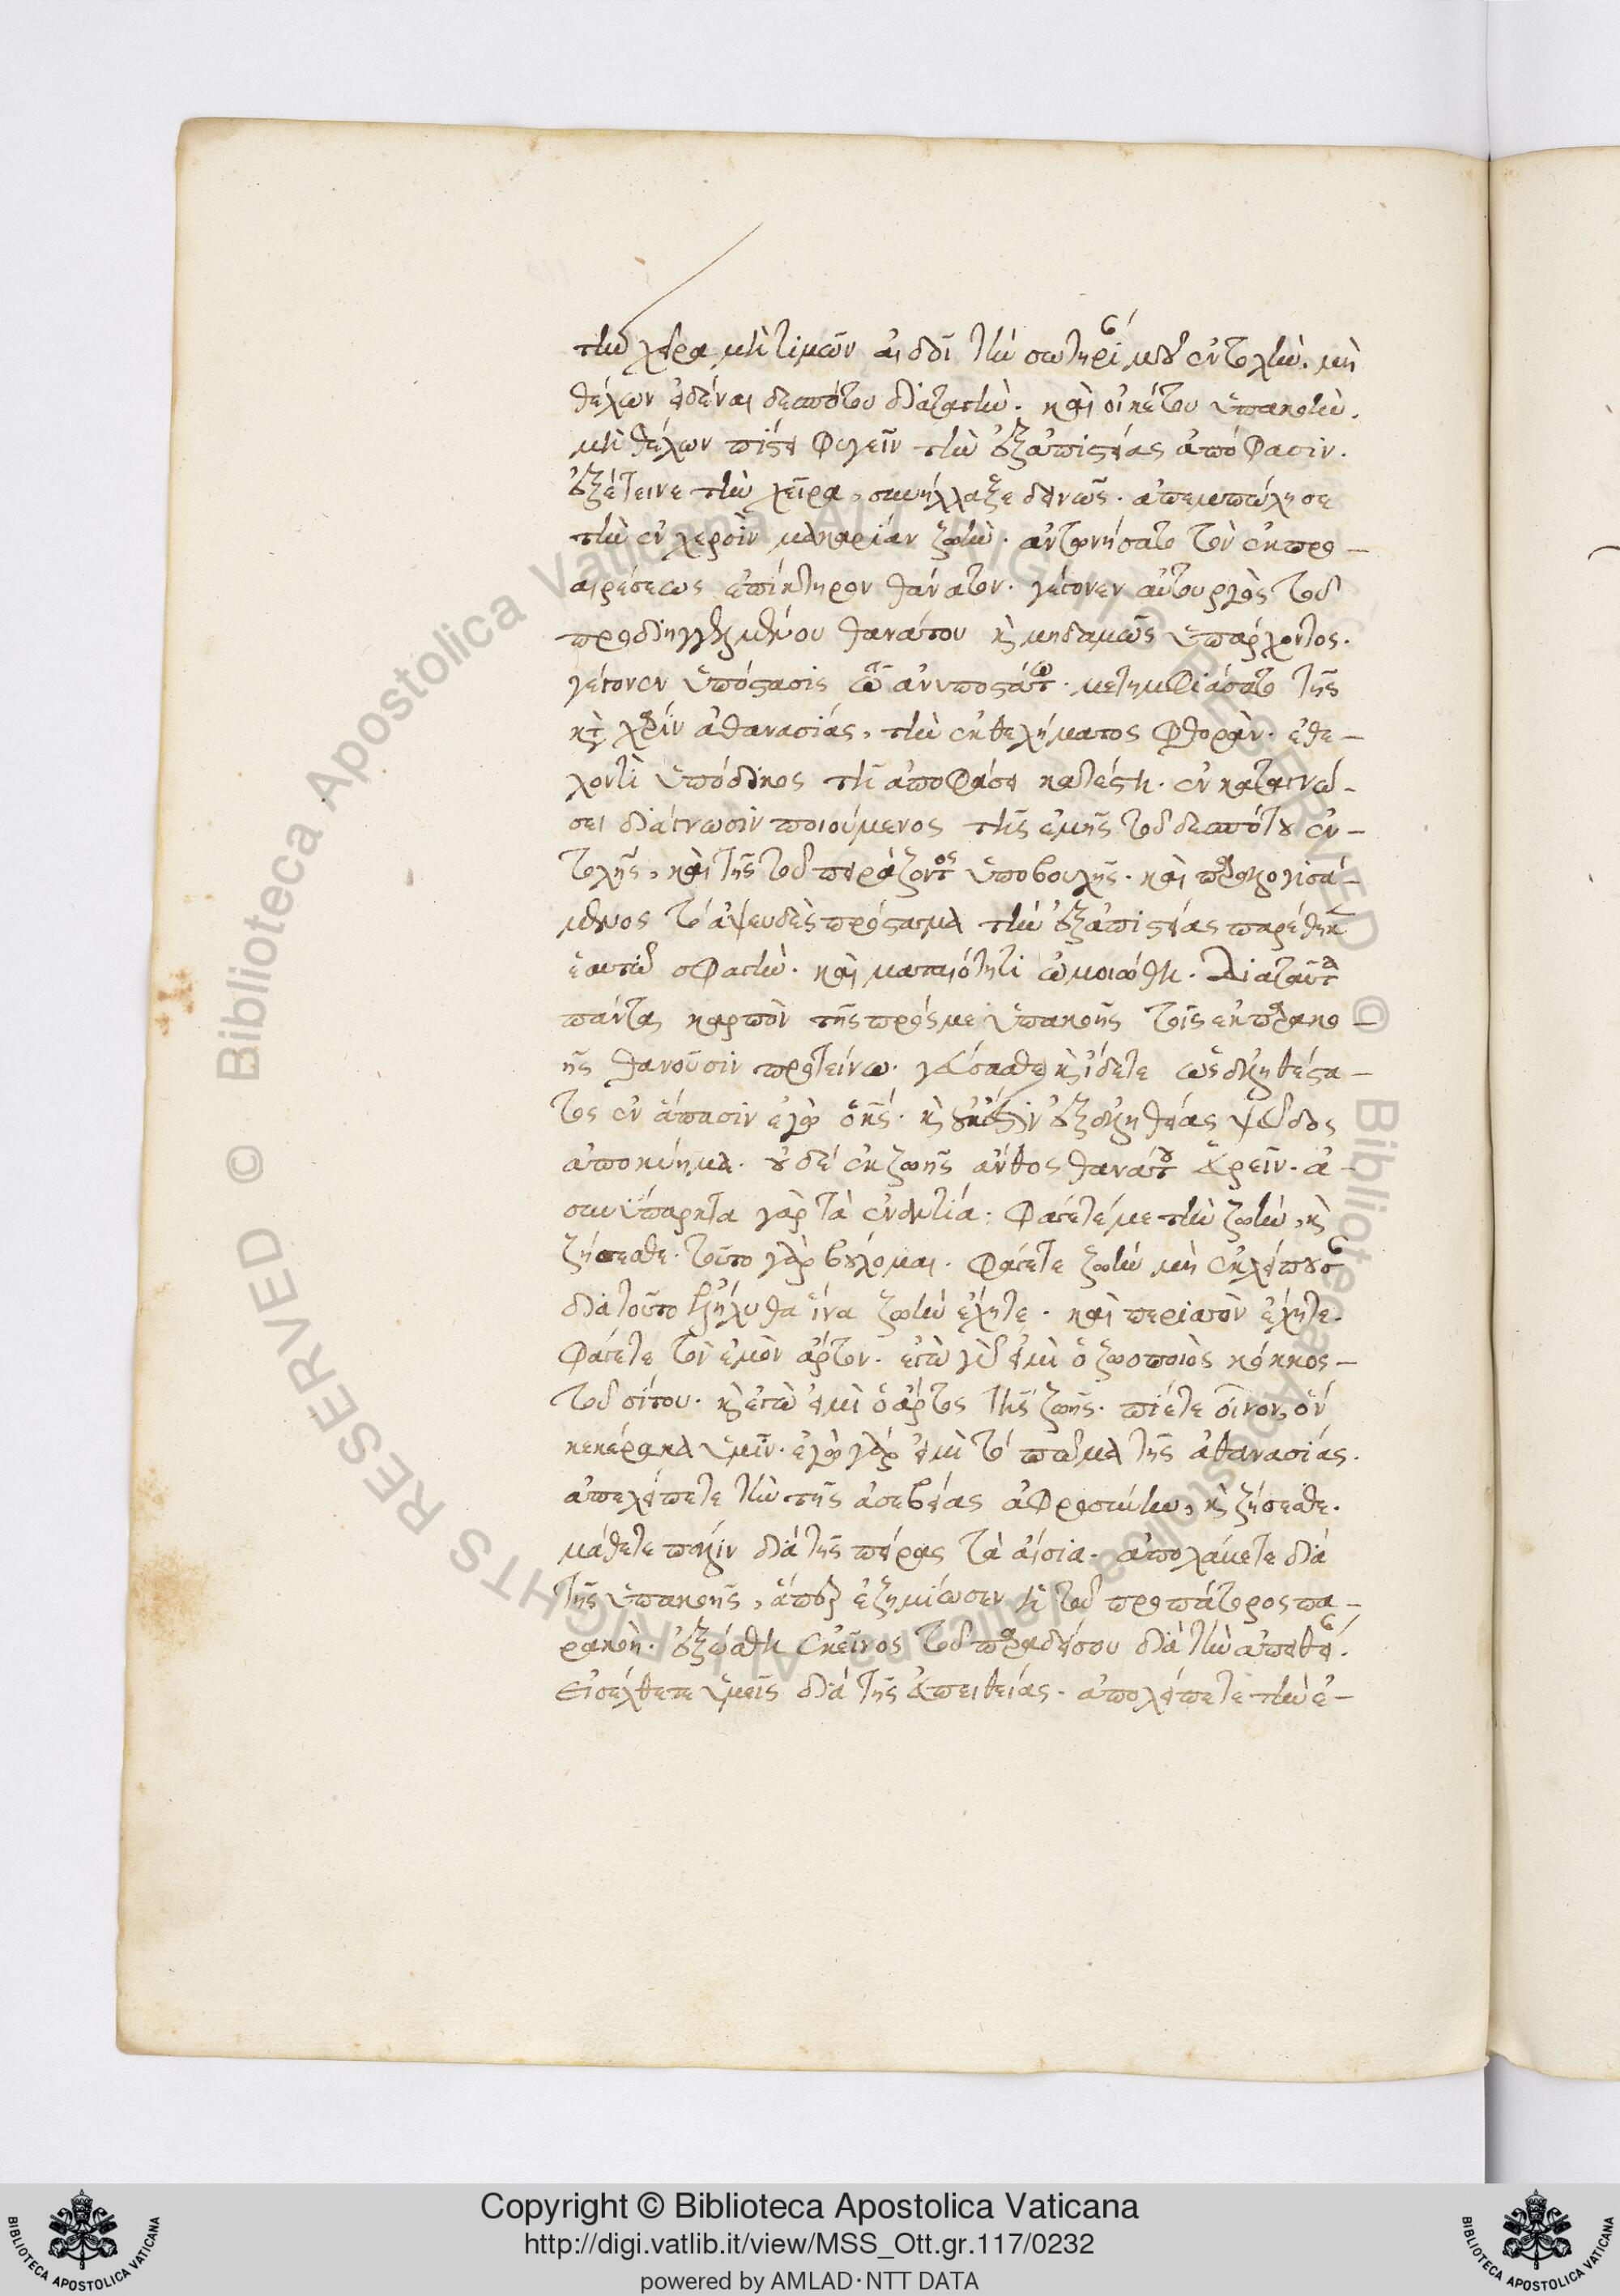 τὴν χεῖρα μὴ τιμῶν αἰδοῖ τὴν σωτήριόν μου ἐντολήν. μὴ
θέλων εἰδέναι δεσπότου διαταγὴν. καὶ οἰκέτου ὑπακοὴν.
μὴ θέλων πίστει φυγεῖν τὴν ἐξ ἀπιστίας ἀπόφασιν.
ἐξέτεινε τὴν χεῖρα, συνήλλαξε δεινῶς. ἀπεμπώλησε
τὴν ἐν χερσὶν μακαρίαν ζωὴν. ἀντωνήσατο τὸν ἐκ προ-
αιρέσεως ἐπίκηρον θάνατον. γέγονεν αὐτουργὸς τοῦ
προδιηγγελμένου θανάτου καὶ μηδαμῶς ὑπάρχοντος.
γέγονεν ὑπόστασις τῶ ἀνυποστάτω. μετημφιάσατο τῆς
κατὰ χάριν ἀθανασίας, τὴν ἐκ θελήματος φθορὰν. ἐθε-
λοντὶ ὑπόδικος τῇ ἀποφάσει κατέστη. ἐν καταγνώ-
σει διάγνωσιν ποιούμενος τῆς ἐμῆς τοῦ δεσπότου ἐν-
τολῆς, καὶ τῆς τοῦ πειράζοντος ὑποβουλῆς. καὶ παραλογισά-
μενος τὸ ἀψευδὲς πρόσταγμα τὴν ἐξ ἀπιστίας παρέθηκεν
ἑαυτῶ σφαγὴν. καὶ ματαιότητι ὡμοιώθη. Διὰ ταῦτα
πάντα καρπὸν τῆς πρός με ὑπακοῆς τοῖς ἐκ παρακο-
ῆς θανοῦσιν προτείνω. γεύσασθε καὶ ἴδετε ὡς ἀληθέστα-
τος ἐν ἅπασιν ἐγὼ ὁ κύριος. καὶ οὐκ ἔστιν ἐξ ἀληθείας ψεῦδος
ἀποκύημα. οὐδὲ ἐκ ζωῆς ἄνθος θανάτου εὑρεῖν. ἀ-
συνύπαρκτα γὰρ τὰ ἐναντία. φάγετέ με τὴν ζωὴν, καὶ
ζήσεσθε. τοῦτο γὰρ βούλομαι. φάγετε ζωὴν μὴ ἐκλείπουσαν
διὰ τοῦτο ἐλήλυθα ἵνα ζωὴν ἔχητε. καὶ περισσὸν ἔχητε.
φάγετε τὸν ἐμὸν ἄρτον. ἐγὼ γὰρ εἰμὶ ὁ ζωοποιὸς κόκκος-
τοῦ σίτου. καὶ ἐγὼ εἰμὶ ὁ ἄρτος τῆς ζωῆς. πίετε οἶνον, ὃν
κεκέρακα ὑμῖν. ἐγὼ γὰρ εἰμὶ τὸ πῶμα τῆς ἀθανασίας.
ἀπολείπετε τὴν τῆς ἀσεβείας ἀφροσύνην, καὶ ζήσεσθε.
μάθετε πάλιν διὰ τῆς πείρας τὰ αἴσια. ἀπολάβετε διὰ
τῆς ὑπακοῆς, ἅπερ ἐζημίωσεν ἡ τοῦ προπάτορος πα-
ρακοὴ. ἐξώσθη ἐκεῖνος τοῦ παραδείσου διὰ τὴν ἀπείθειαν.
εἰσέλθετε ὑμεῖς διὰ τῆς εὐπειθείας. ἀπολείπετε τὴν ἐ-
Copyright © Biblioteca Apostolica Vaticana
http://digi.vatlib.it/view/MSS_Ott.gr.117/0232
powered by AMLAD·NTT DATA